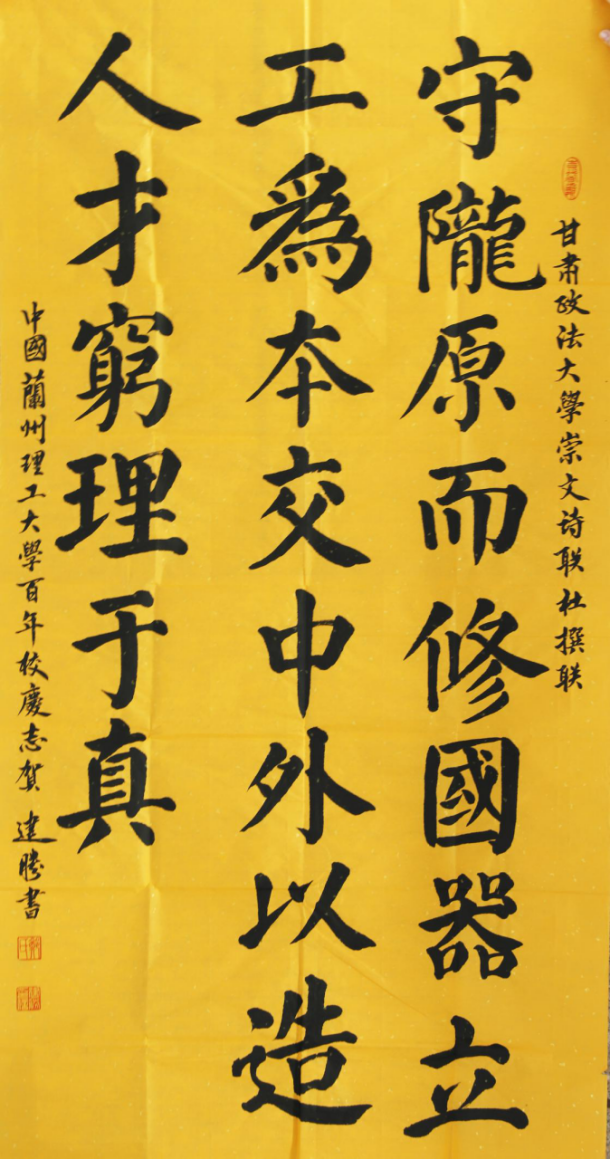 甘肅政法大學崇文诗联社撰联
守隴原而修國器立
工為本交中外以造
人才窮理于真
中國蘭州理工大學百年校慶志贺 建勝書